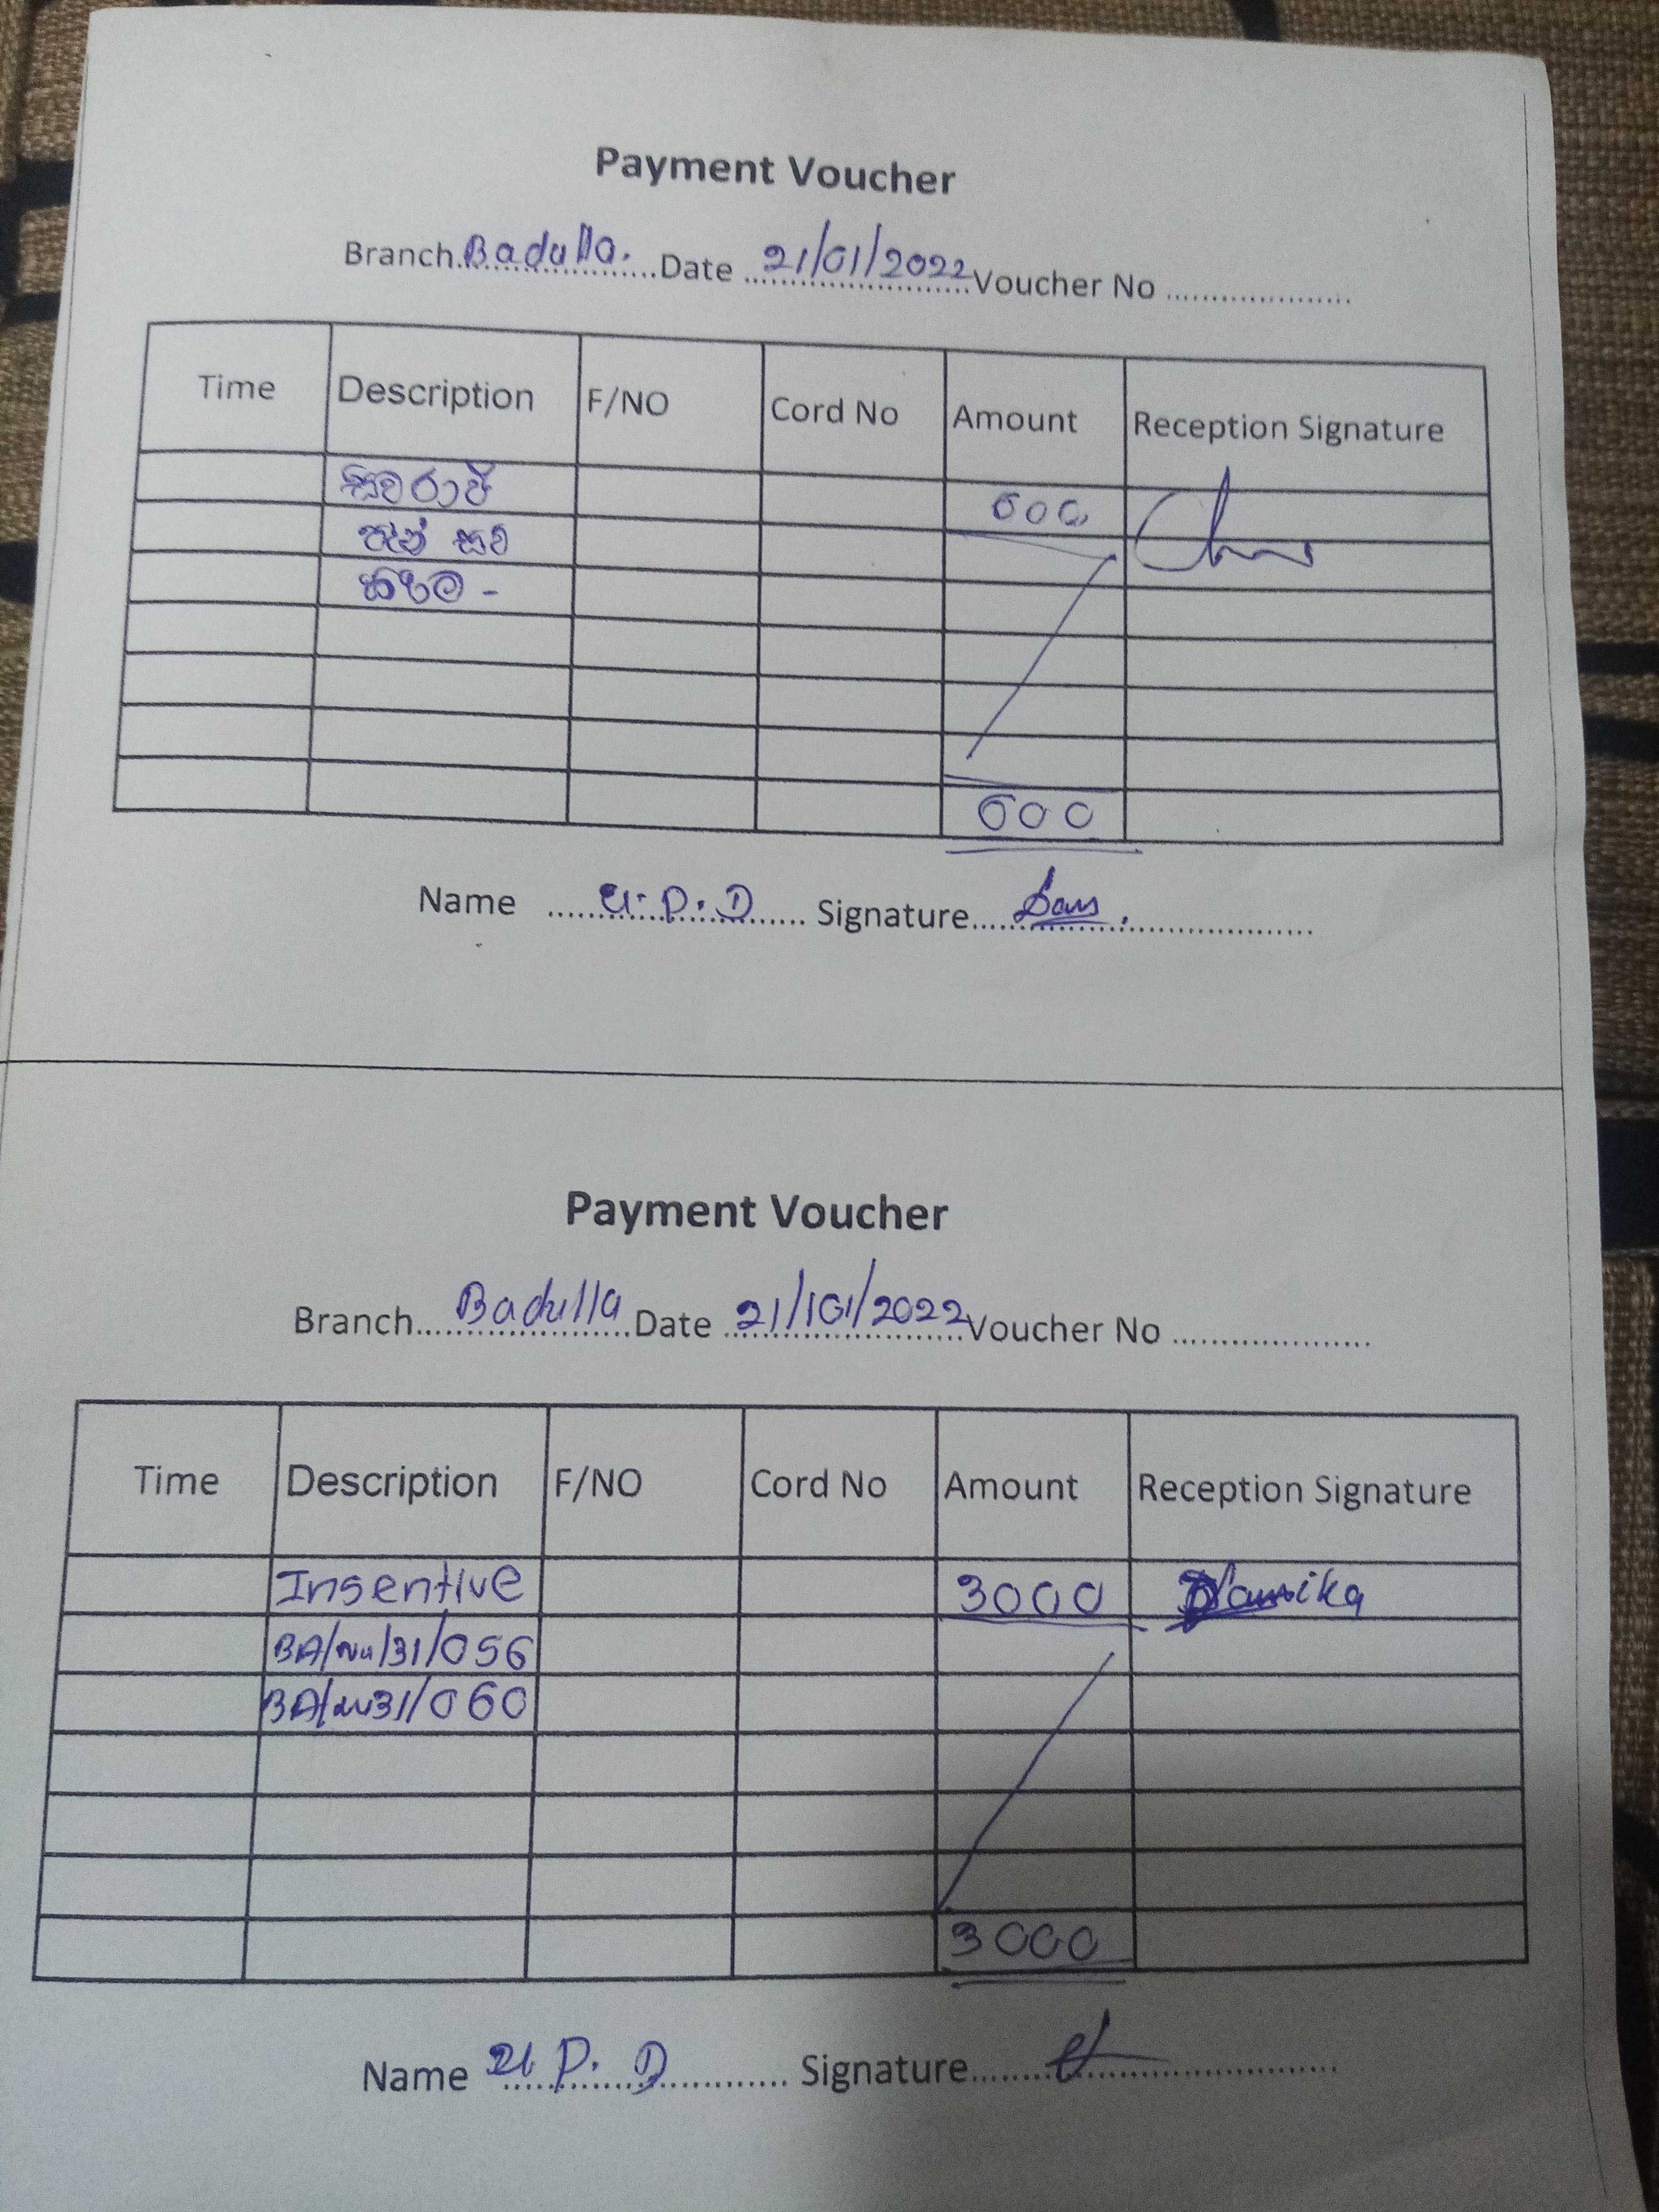 Payment Voucher
Branch Badulla. Date 21/01/2022 Voucher No
Time Description F/NO Cord No Amount Reception Signature
600
600
Name U.P.D Signature
Payment Voucher
Branch Badulla Date 21/101/2022 Voucher No
Time Description F/NO Cord No Amount Reception Signature
Insentive 3000
BA/Nu/31/056
BA/Nu31/060
3000
Name U P. D Signature